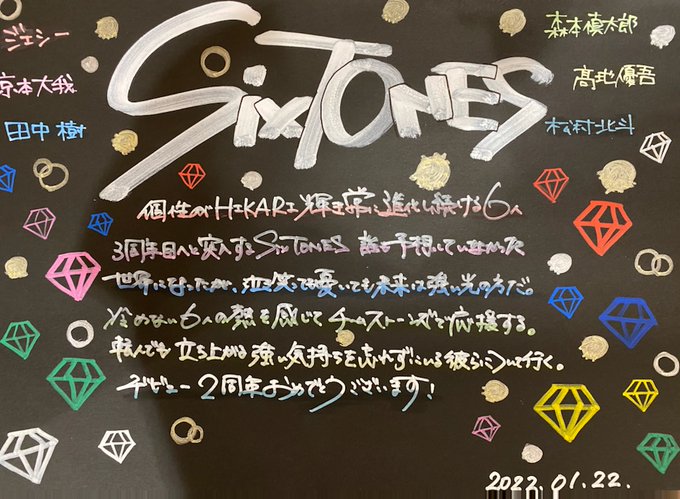 SixTONES
ジェシー
京本大我
田中樹
森本慎太郎
髙地優吾
松村北斗
個性がHIKARI輝き常に進化し続ける6人
3周年目へと突入するSixTONES 誰も予想していなかった
世界になったが、泣き笑っても憂いても未来は強い光の方だ。
冷めない6人の熱を感じてチームストーンズで応援する。
転んでも立ち上がる強い気持ちを忘れずにいる彼らについて行く。
デビュー2周年おめでとうございます!
2022.01.22.